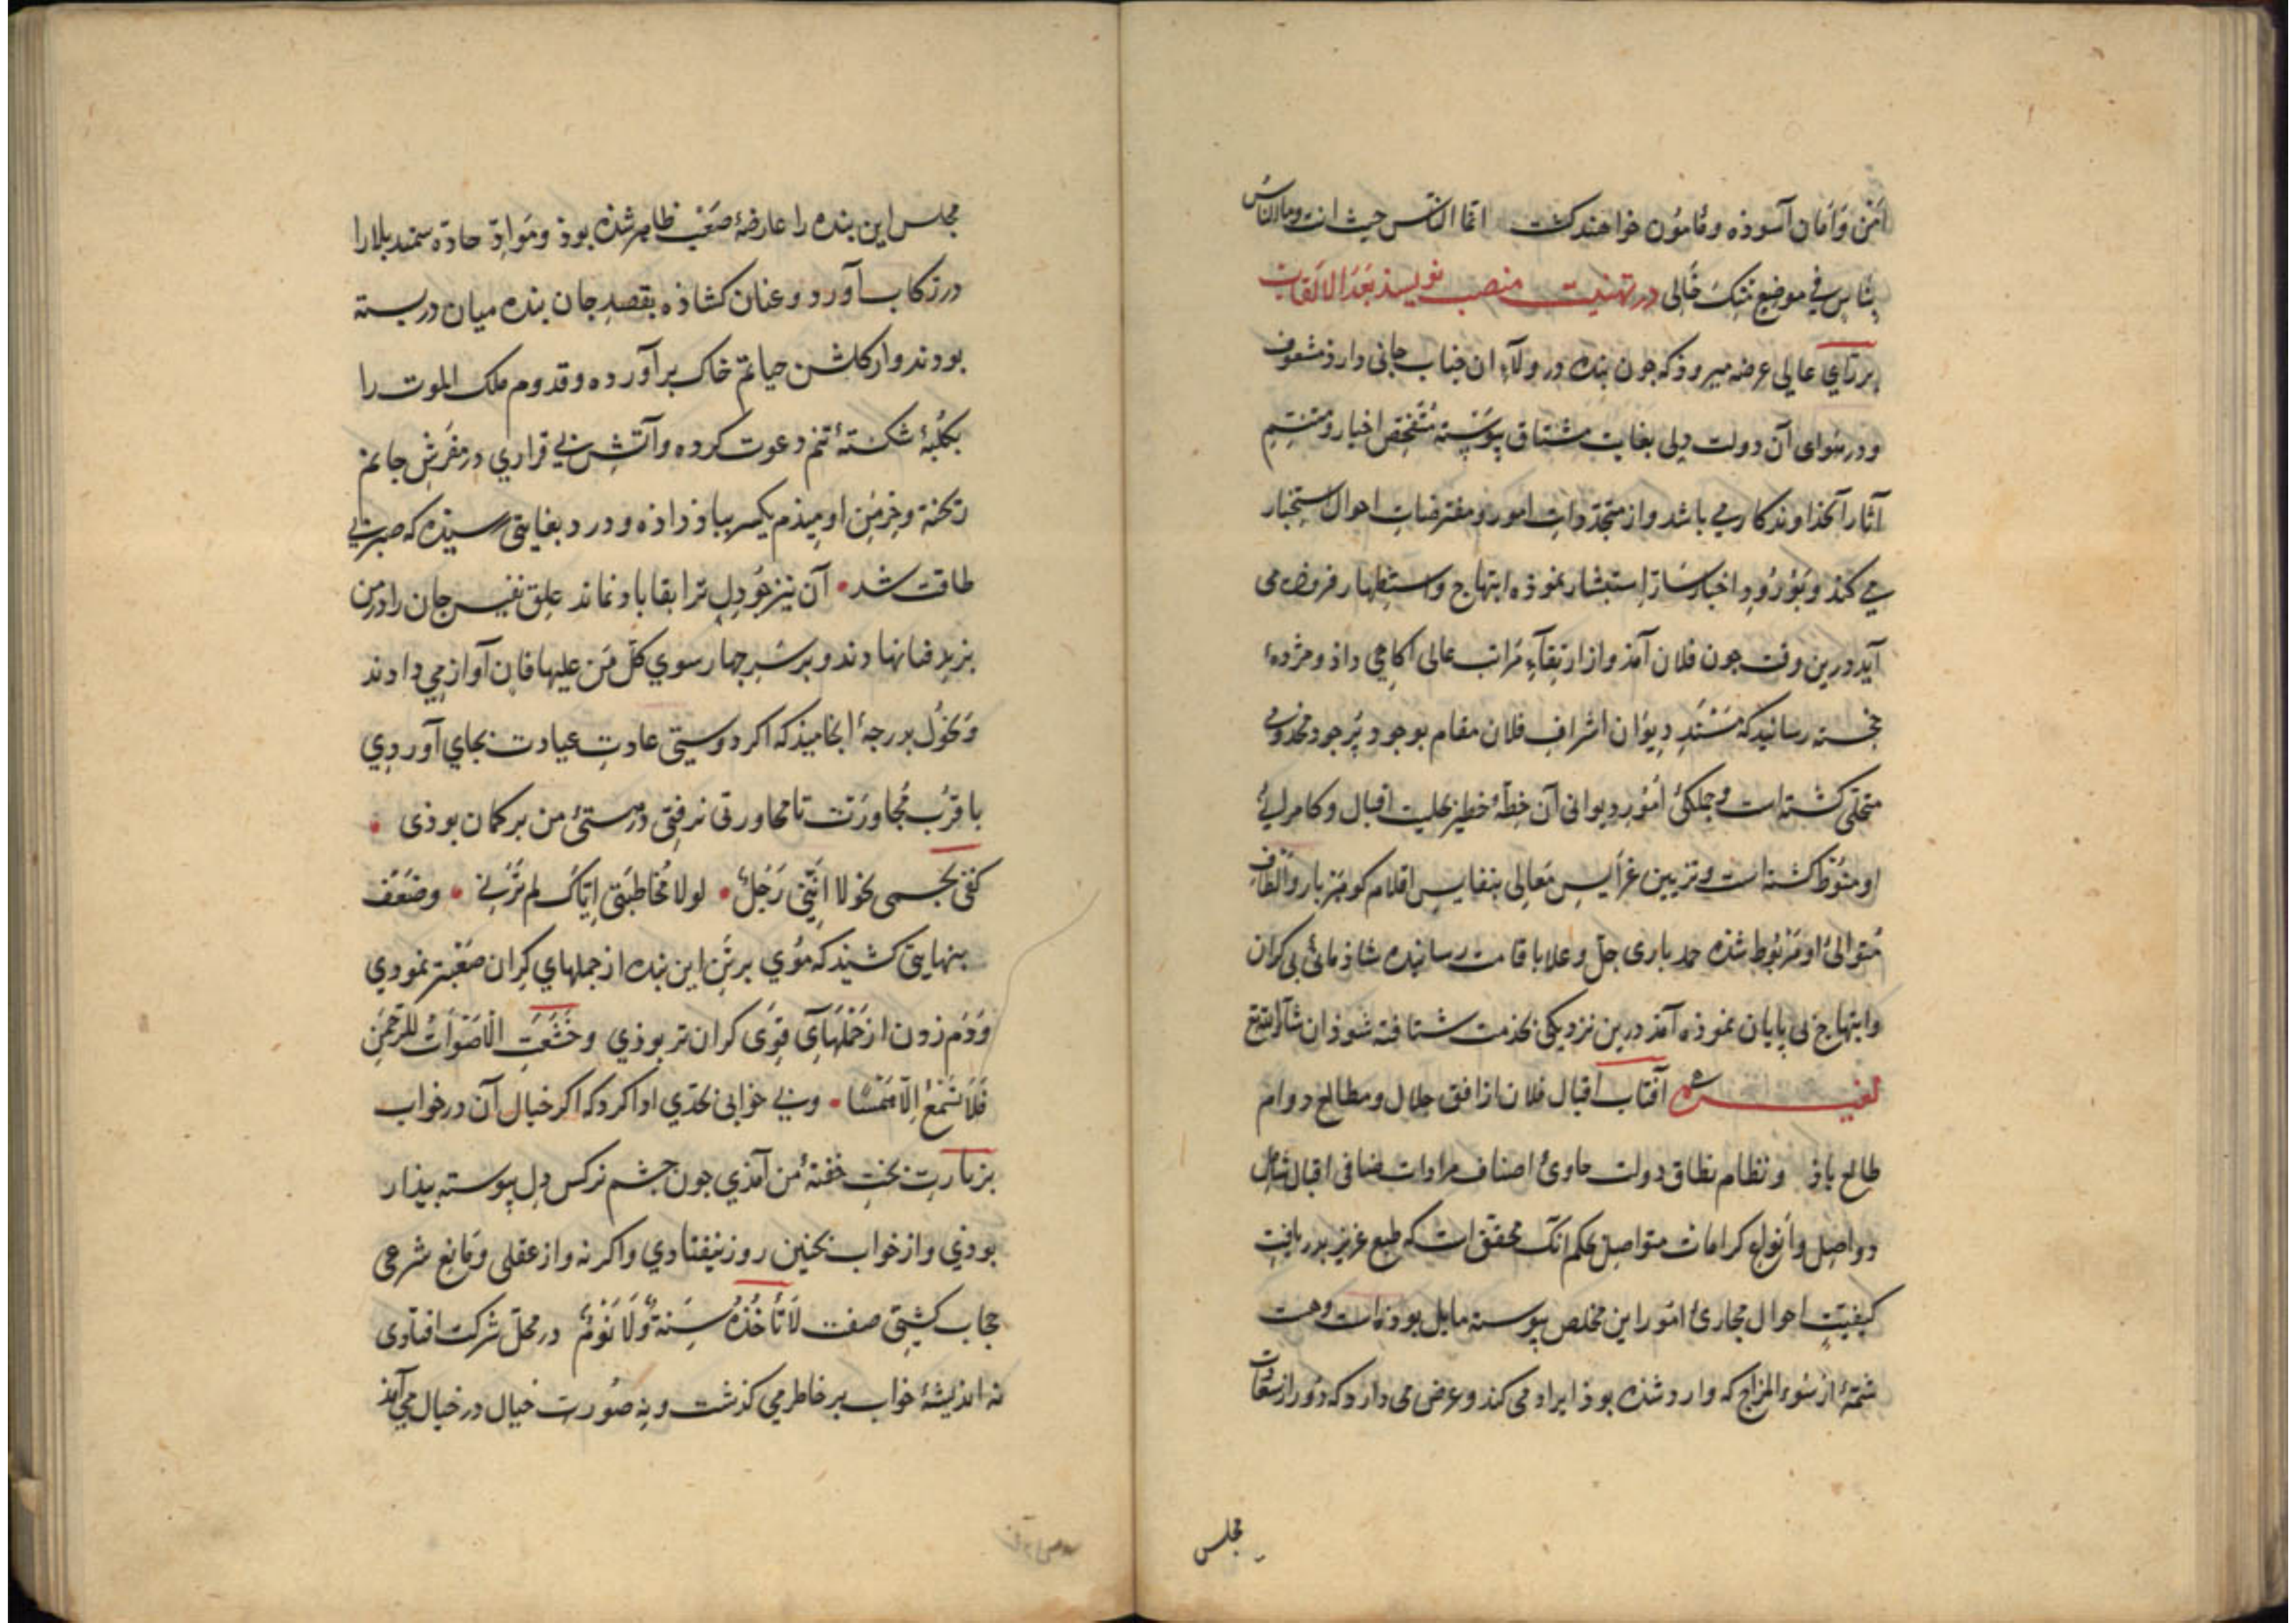 امن و امان آسوذه و مامون خواهند کشت انما الناس حیث انت وما الناس
بناس فی موضع منک خالی در تهنیت منصب نویسد بعد الالقاب
بر رای عالی عرضه میروذ که جون بنده در ولاء ان جناب جانی دارذ مشعوف
و در هوای آن دولت دلی بغایت مشتاق پیوسته متفحص اخبار و متنسم
آثار آنخذاوندکار می باشد و از متجددات امور و مفترضات احوال استخبار
می کند و بورود اخبار سار استبشار نموذه ابتهاج و استظهار فزوذه می
آید درین وقت جون فلان آمذ و از ارتقاء مراتب عالی آکاهی داذ و مژدهٔ
خجسته رسانید که مسند دیوان اشراف فلان مقام بوجود پرجود مخدومی
متحلی کشته است و جملکی امور دیوانی آن خطهٔ خطیر بحلیت اقبال و کامرانی
او منوط کشته است و تزیین عرایس معالی بنفایس اقلام کوهربار و الطاف
متوالیٔ او مربوط شذه حمد باری جل و علا باقامت رسانیده شاذمانی بی کران
و ابتهاج بی پایان نموذه آمذ درین نزدیکی بخدمت شتافته شوذ ان شاالله تع
لغیره آفتاب اقبال فلان از افق جلال و مطالع دوام
طالع باذ و نظام نطاق دولت حاویٔ اصناف مرادات ضافی اقبال شامل
دواصل و انواع کرامات متواصل بحکم انک محقق است که طبع عزیز بدریافت
کیفیت احوال مجاریٔ امور این مخلص پیوسته مایل بوذه است و هست
شمهٔ از سوء المزاج که وارد شذه بوذ ایراد می کند و عرض می دارد که دور از سعادت
مجلس
مجلس این بنده را عارضهٔ صعب ظاهر شذه بوذ و مواد حاده سمند بلا را
در رکاب آورد و عنان کشاذه بقصد جان بنده میان دربسته
بودند و از کلشن حیاتم خاک برآورده و قدوم ملک الموت را
بکلبهٔ شکستهٔ تنم دعوت کرده و آتش بی قراری در مفرش جانم
ریخته و خرمن اومیذم یکسر بباذ داذه و درد بغایتی رسیذه که صبر بی
طاقت شد • آن نیز جو دل ترا بقا باد نماند علق نفیس جان را در من
یزید فنا نهادند و بر سر چهار سوی کل من علیها فان آواز می دادند
و نحول بدرجهٔ انجامیذ که اکر دوستی عادت عیادت بجای آوردی
با قرب مجاورت تا محاورتی نرفتی در هستیٔ من برکمان بوذی •
کفی بجسمی نحولا اننی رجل • لولا مخاطبتی ایاک لم ترنی • و ضعف
بنهایتی کشیذ که موی بر تن این بنده از جملهای کران صعبتر نمودی
و دم زدن از حملهآی قوی کران تر بوذی و خشعت الاصوات للرحمن
فلا تسمع الا همسا • و بی خوابی بحدی ادا کرد که اکر خیال آن در خواب
بزیارت بخت خفتهٔ من آمذی جون جشم نرکس دل پیوسته بیذار
بوذی و از خواب بجنین روز نیفتادی و اکر نه وازع عقلی و مانع شرعی
حجاب کشتی صفت لا تأخذه سنة ولا نوم در محل شرکت افتاوی
نه اندیشهٔ خواب بر خاطر می کذشت و نه صورت خیال در خیال می آمذ